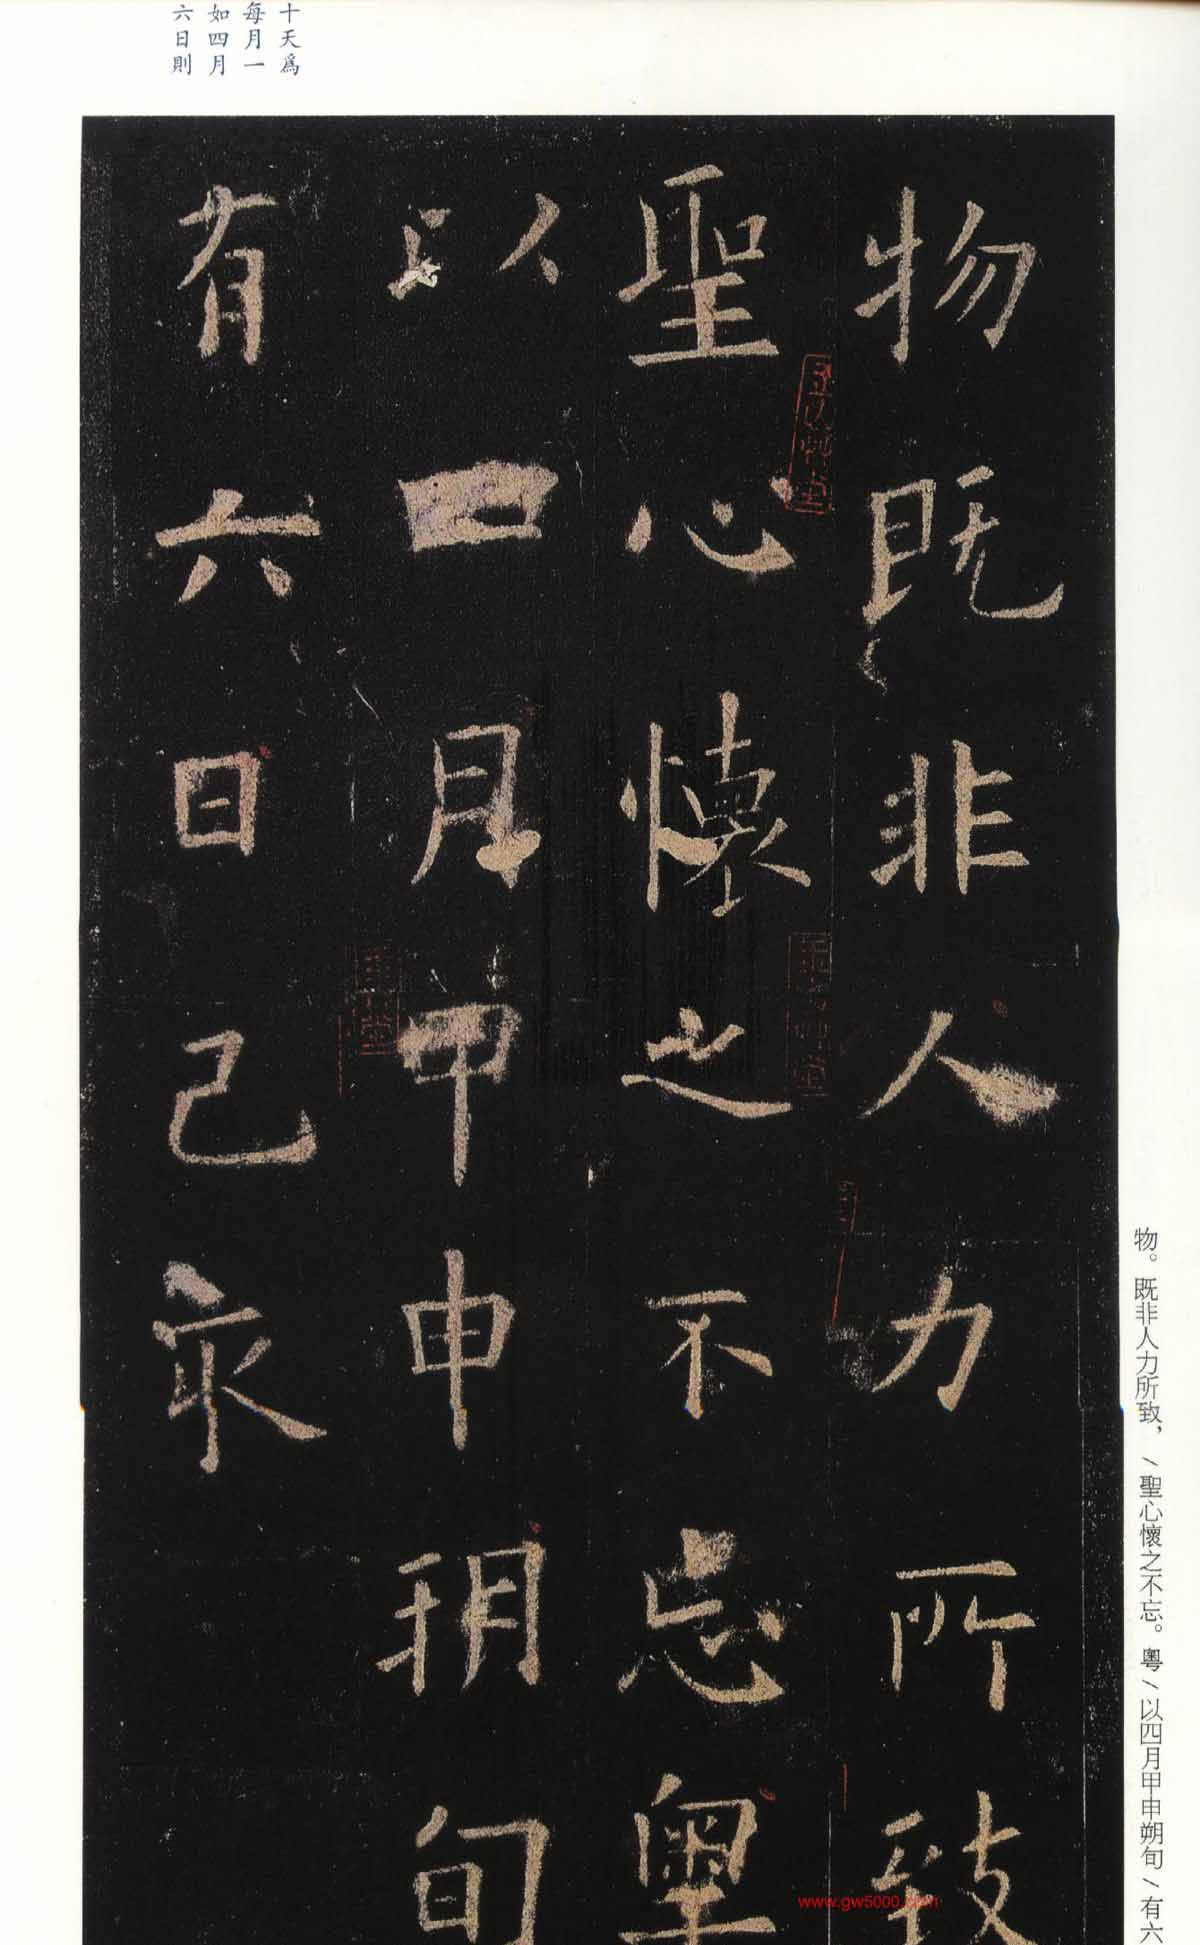 物既非人力所致
聖心懷之不忘粵
以四月甲申朔旬
有六日己亥
十天爲
每月一
如四月
六日則
物。既非人力所致，\聖心懷之不忘。粵\以四月甲申朔旬\有六
www.gw5000.com